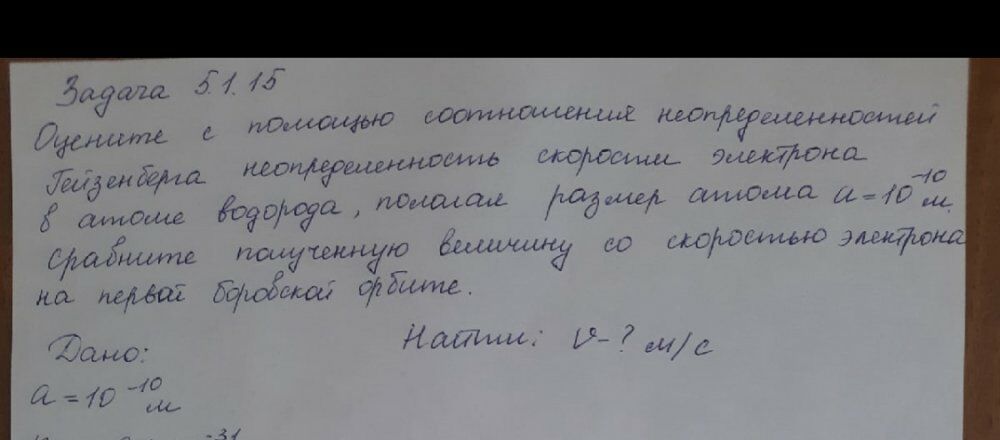 Задача 5.1.15
Оцените с помощью соотношения неопределенностей
Гейзенберга неопределенность скорости электрона
в атоме водорода, полагая размер атома a=10⁻¹⁰ м.
Сравните полученную величину со скоростью электрона
на первой боровской орбите.
Дано:
Найти: v-? м/с
a=10⁻¹⁰ м